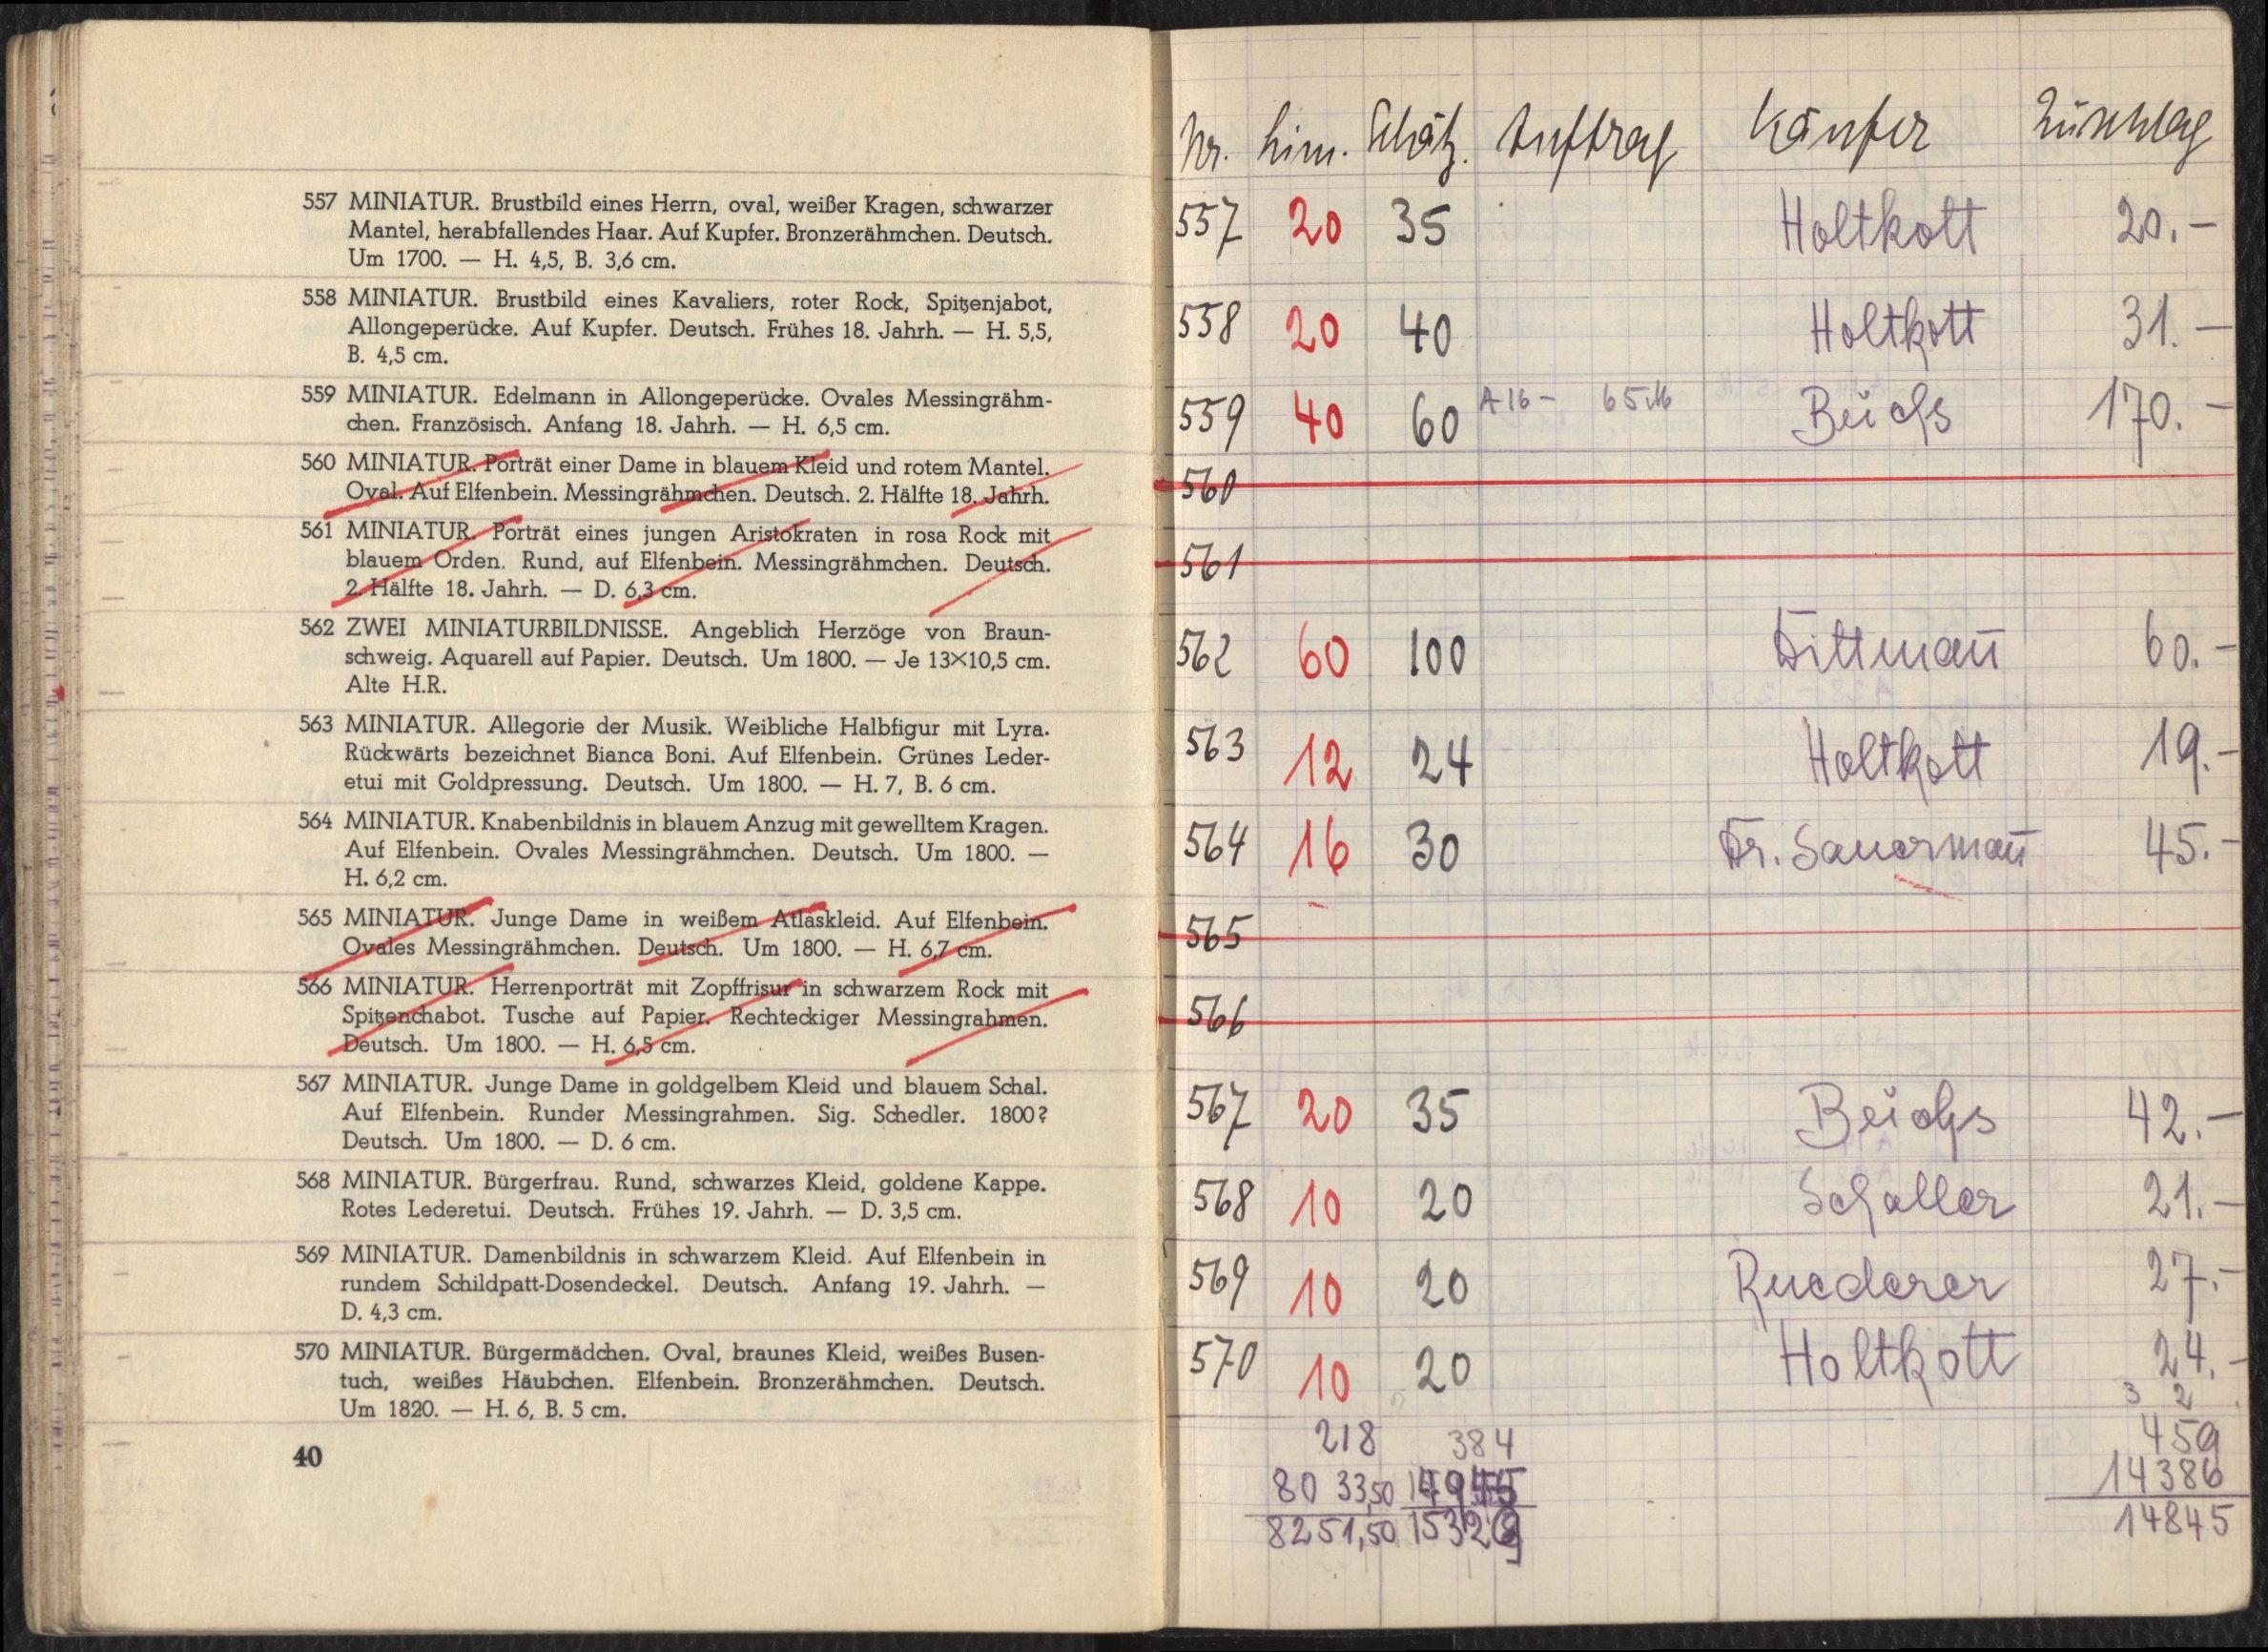 557 MINIATUR. Brustbild eines Herrn, oval, weißer Kragen, schwarzer
Mantel, herabfallendes Haar. Auf Kupfer. Bronzerähmchen. Deutsch.
Um 1700. — H. 4,5, B. 3,6 cm.
558 MINIATUR. Brustbild eines Kavaliers, roter Rock, Spitzenjabot,
Allongeperücke. Auf Kupfer. Deutsch. Frühes 18. Jahrh. — H. 5,5,
B. 4,5 cm.
559 MINIATUR. Edelmann in Allongeperücke. Ovales Messingrähm-
chen. Französisch. Anfang 18. Jahrh. — H. 6,5 cm.
560 MINIATUR. Porträt einer Dame in blauem Kleid und rotem Mantel.
Oval. Auf Elfenbein. Messingrähmchen. Deutsch. 2. Hälfte 18. Jahrh.
561 MINIATUR. Porträt eines jungen Aristokraten in rosa Rock mit
blauem Orden. Rund, auf Elfenbein. Messingrähmchen. Deutsch.
2. Hälfte 18. Jahrh. — D. 6,3 cm.
562 ZWEI MINIATURBILDNISSE. Angeblich Herzöge von Braun-
schweig. Aquarell auf Papier. Deutsch. Um 1800. — Je 13×10,5 cm.
Alte H.R.
563 MINIATUR. Allegorie der Musik. Weibliche Halbfigur mit Lyra.
Rückwärts bezeichnet Bianca Boni. Auf Elfenbein. Grünes Leder-
etui mit Goldpressung. Deutsch. Um 1800. — H. 7, B. 6 cm.
564 MINIATUR. Knabenbildnis in blauem Anzug mit gewelltem Kragen.
Auf Elfenbein. Ovales Messingrähmchen. Deutsch. Um 1800. —
H. 6,2 cm.
565 MINIATUR. Junge Dame in weißem Atlaskleid. Auf Elfenbein.
Ovales Messingrähmchen. Deutsch. Um 1800. — H. 6,7 cm.
566 MINIATUR. Herrenporträt mit Zopffrisur in schwarzem Rock mit
Spitzenchabot. Tusche auf Papier. Rechteckiger Messingrahmen.
Deutsch. Um 1800. — H. 6,5 cm.
567 MINIATUR. Junge Dame in goldgelbem Kleid und blauem Schal.
Auf Elfenbein. Runder Messingrahmen. Sig. Schedler. 1800?
Deutsch. Um 1800. — D. 6 cm.
568 MINIATUR. Bürgerfrau. Rund, schwarzes Kleid, goldene Kappe.
Rotes Lederetui. Deutsch. Frühes 19. Jahrh. — D. 3,5 cm.
569 MINIATUR. Damenbildnis in schwarzem Kleid. Auf Elfenbein in
rundem Schildpatt-Dosendeckel. Deutsch. Anfang 19. Jahrh. —
D. 4,3 cm.
570 MINIATUR. Bürgermädchen. Oval, braunes Kleid, weißes Busen-
tuch, weißes Häubchen. Elfenbein. Bronzerähmchen. Deutsch.
Um 1820. — H. 6, B. 5 cm.
40
Nr. Lim. Schätz. Auftrag Käufer Zuschlag
557 20 35 Holtkott 20.—
558 20 40 Holtkott 31.—
559 40 60 A16 - 65 M Beuchs 170.—
560
561
562 60 100 Dittmann̄ 60.—
563 12 24 Holtkott 19.—
564 16 30 Dr. Sauermann̄ 45.—
565
566
567 20 35 Beuchs 42.—
568 10 20 Schaller 21.—
569 10 20 Ruederer 27.—
570 10 20 Holtkott 24.—
3 2
218 384 459
8033,50 14386
8251,50 14845